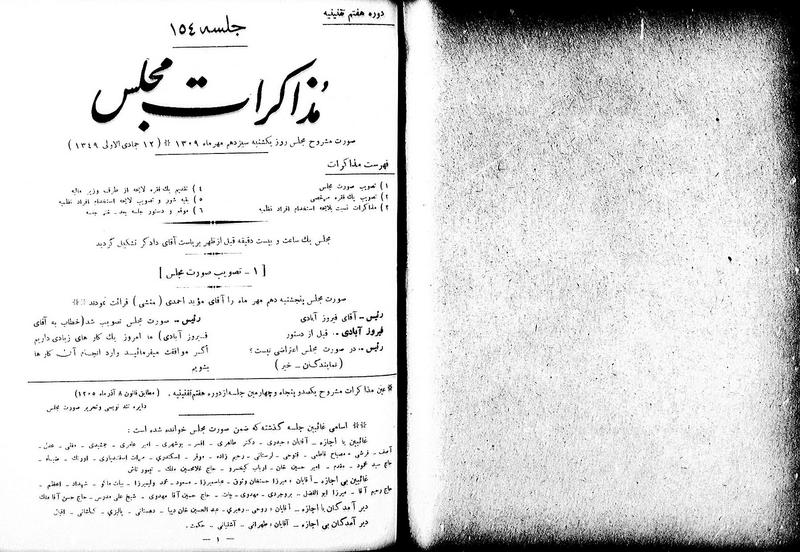 دوره هفتم تقنینیه
جلسه ١٥٤
مذاکرات مجلس
صورت مشروح مجلس روز یکشنبه سیزدهم مهر ماه ١٣٠٩ ** ( ١٢ جمادی الاولی ١٣٤٩ )
فهرست مذاکرات
١ ) تصویب صورت مجلس
٢ ) تصویب یك فقره مرخصی
٣ ) مذاکرات نسبت بلایحه استخدام افراد نظمیه
٤ ) تقدیم یك فقره لایحه از طرف وزیر مالیه
٥ ) بقیه شور و تصویب لایحه استخدام افراد نظمیه
٦ ) موقع و دستور جلسه بعد - ختم جلسه
مجلس یك ساعت و بیست دقیقه قبل از ظهر بریاست آقای دادگر تشکیل گردید
[ ١ - تصویب صورت مجلس ]
صورت مجلس پنجشنبه دهم مهر ماه را آقای مؤید احمدی ( منشی ) قرائت نمودند **
رئیس - آقای فیروز آبادی
فیروز آبادی - قبل از دستور
رئیس - در صورت مجلس اعتراضی نیست؟
( نمایندگان - خیر )
رئیس - صورت مجلس تصویب شد (خطاب به آقای
فیروز آبادی) ما امروز یك کار های زیادی داریم
اگر موافقت میفرمائید وارد انجام آن کار ها
بشویم
* عین مذاکرات مشروح یکصدو پنجاه و چهارمین جلسه از دوره هفتم تقنینیه . ( مطابق قانون ٨ آذر ماه ١٣٠٥ )
دایره تند نویسی و تحریر صورت مجلس
** اسامی غائبین جلسه گذشته که ضمن صورت مجلس خوانده شده است :
غائبین با اجازه - آقایان : دکتر طاهری - افسر - بوشهری - امیر عامری - جمشیدی - مفتی - عدل -
آصف - قرشی - مصباح فاطمی - فتوحی - لرستانی - رحیم زاده - موقر - اسکندری - میرزا - اسفندیاری - اورنك -
حاج سید محمود - مقدم - امیر حسین خان - ارباب کیخسرو - حاج غلامحسین ملك - تیمور تاش
غائبین بی اجازه - آقایان : میرزا حسنخان وثوق - عباسمیرزا - مسعود - محمد ولیمیرزا - بیات ماکو - شهداد - اعظم -
حاج رحیم آقا - میرزا ابوالفضل - بروجردی - مهدوی - بیات - حاج حسین آقا مهدوی - شیخ علی مدرس - حاج حسن آقا ملك
دیر آمدگان با اجازه - آقایان : روحی - رهبری - عبدالحسین خان دیبا - دهستانی - پالیزی - کاشانی - اقبال
دیر آمدگان بی اجازه - آقایان : طهرانی - آشتیانی - حکمت .
- ١ -